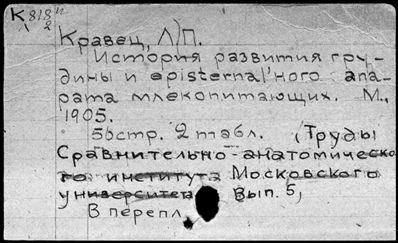 К 818 "
2
Кравец, Л)П.
История развития гру-
дины и episternal'ного апа-
рата млекопитающих. М.,
1905.
56стр. 2 табл. (Труды
Сравнительно-анатомическо-
го института Московского
университета Вып. 5,
В перепл.